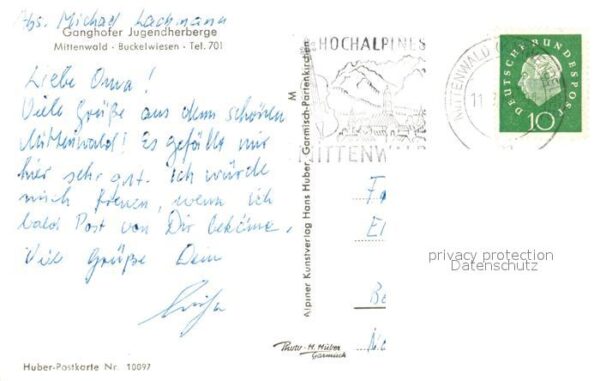 Abs. Michael Lachmann
Ganghofer Jugendherberge
Mittenwald - Buckelwiesen - Tel. 701
Liebe Oma!
Viele Grüße aus dem schönen
Mittenwald! Es gefällt mir
hier sehr gut. Ich würde
mich freuen, wenn ich
bald Post von Dir bekäme.
Viele Grüße Dein
Huber-Postkarte Nr 10097
M
Alpiner Kunstverlag Hans Huber, Garmisch-Partenkirchen
Photo-H. Huber
Garmisch
HOCHALPINES
MITTENWALD
MITTENWALD
11
DEUTSCHE BUNDESPOST
10
privacy protection
Datenschutz